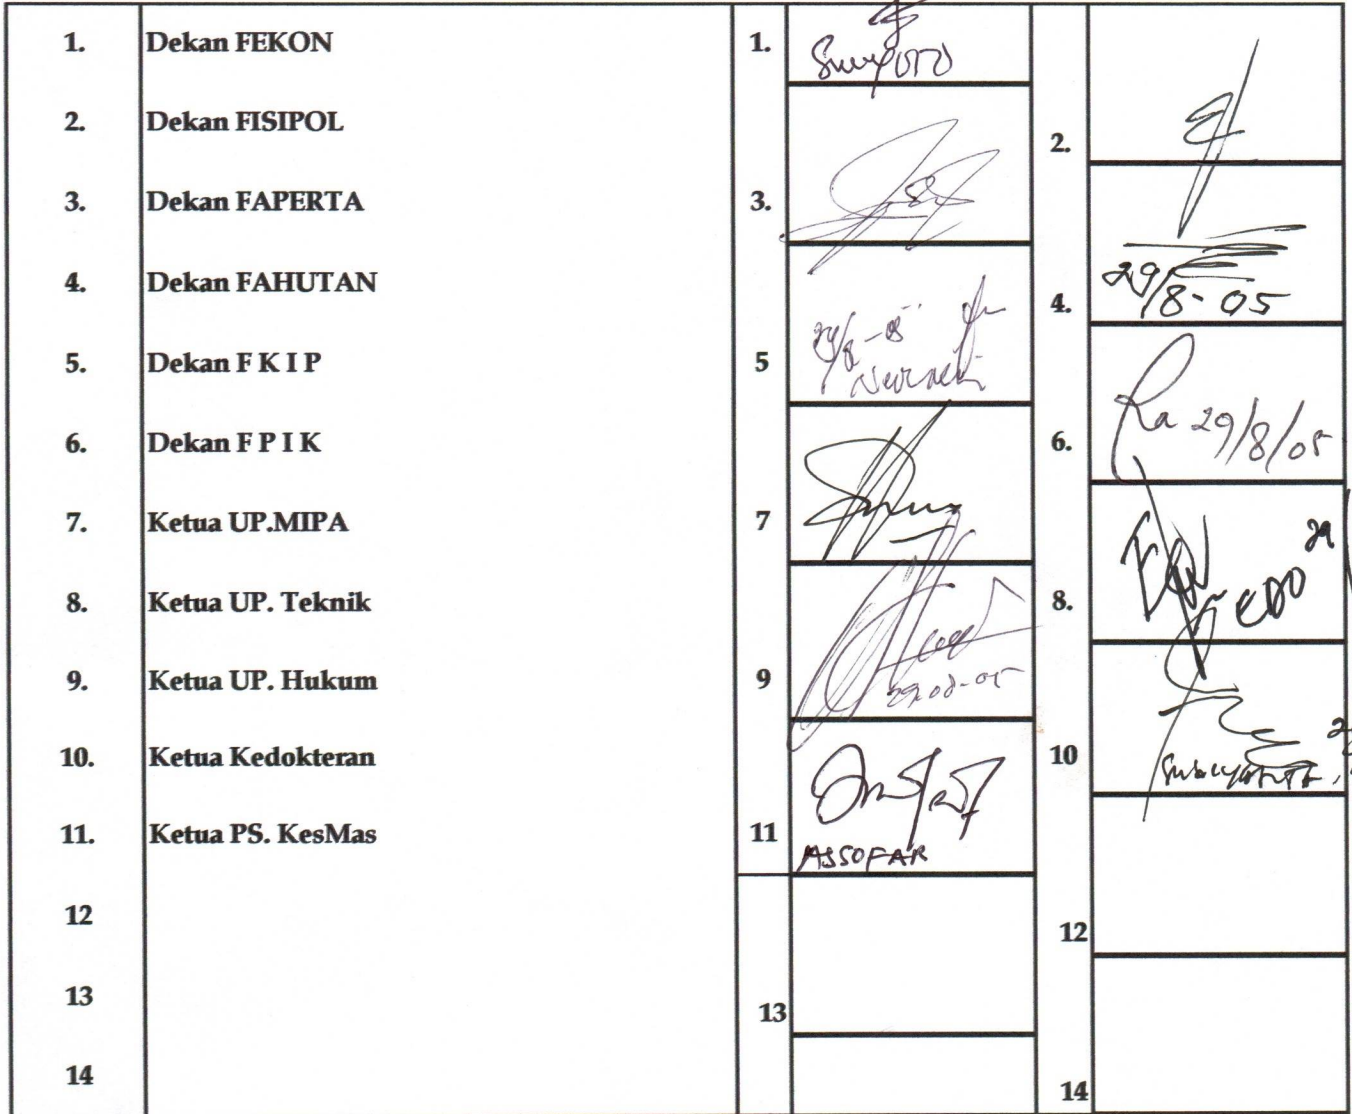 1. Dekan FEKON 1.
2. Dekan FISIPOL 2.
3. Dekan FAPERTA 3.
4. Dekan FAHUTAN 4. 29/8-05
5. Dekan F K I P 5
6. Dekan F P I K 6. Ra 29/8/05
7. Ketua UP.MIPA 7
8. Ketua UP. Teknik 8. EDO 29
9. Ketua UP. Hukum 9 29-08-05
10. Ketua Kedokteran 10
11. Ketua PS. KesMas 11 ASSOFAR
12 12
13 13
14 14